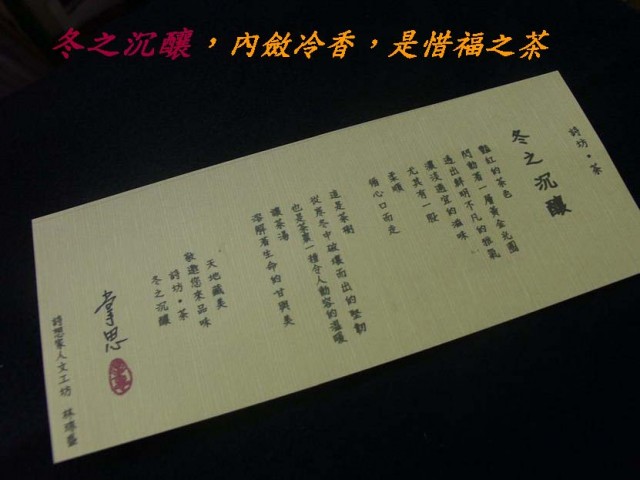 冬之沉釀,內斂冷香,是惜福之茶
詩坊・茶
冬之沉釀
豔紅的茶色
閃動著一層黃金光圈
透出鮮明不凡的雅氣
濃淺適宜的滋味
尤其有一股
柔順
循心口而走
這是茶樹
從寒冬中破壞而出的堅韌
也是茶薑一種令人動容的溫暖
讓茶湯
溶解著生命的甘與美
天地藏美
敬邀您來品味
詩坊・茶
冬之沉釀
詩想家人文工坊 林